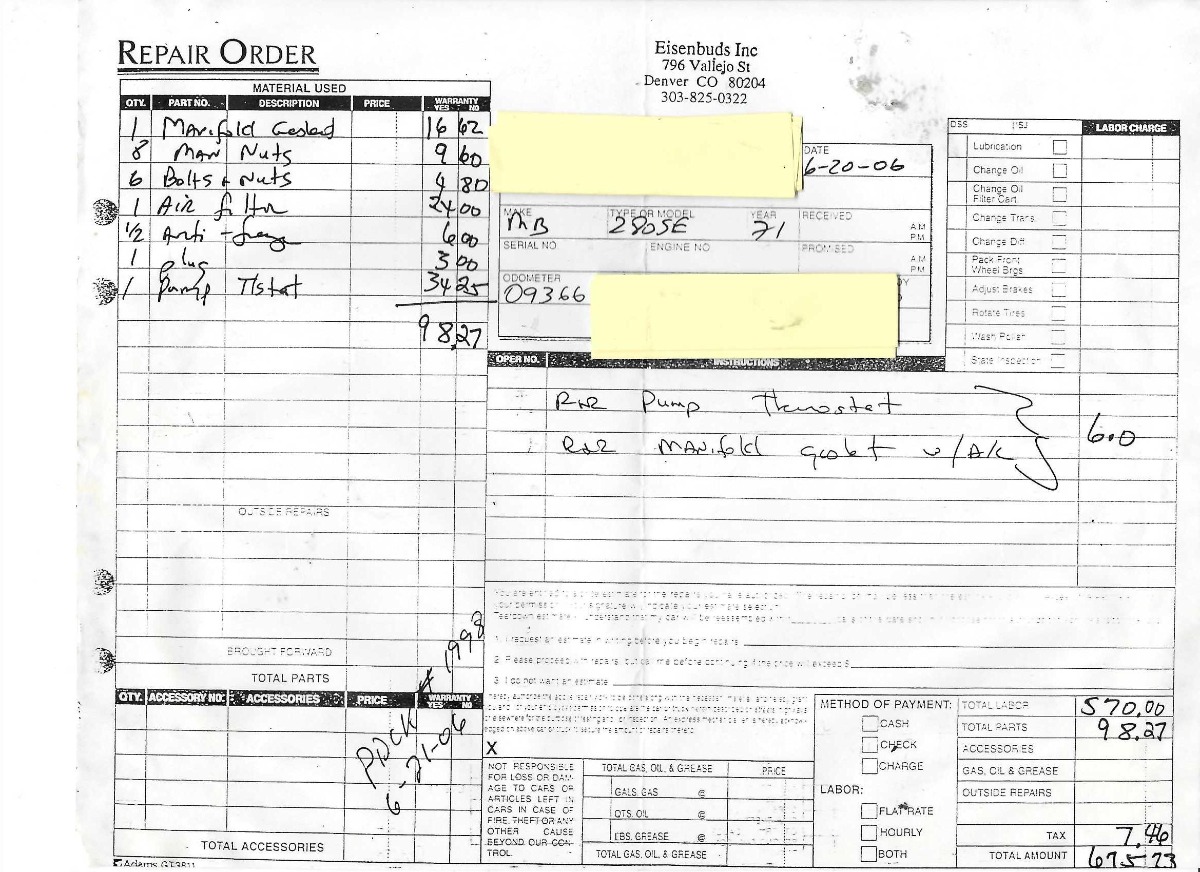 REPAIR ORDER
Eisenbuds Inc
796 Vallejo St
Denver CO 80204
303-825-0322
MATERIAL USED
QTY. PART NO. DESCRIPTION PRICE WARRANTY YES NO
1 Manifold 16 62
8 Man Nuts 9 60
6 Bolts + Nuts 4 80
1 Air 24 00
1/2 Anti - 6 00
1 plug 3 00
1 pump Tstat 34 25
98.27
OUTSIDE REPAIRS
BROUGHT FORWARD
TOTAL PARTS
DATE
6-20-06
MAKE TYPE OR MODEL YEAR RECEIVED A.M P.M
MB 280SE 71
SERIAL NO ENGINE NO PROMISED A.M P.M
ODOMETER
09366
LABOR CHARGE
Lubrication
Change Oil
Change Oil Filter Cart.
Change Trans
Change Diff
Pack Front Wheel Brgs
Adjust Brakes
Rotate Tires
Wash Polish
State Inspection
OPER NO. INSTRUCTIONS
R&R Pump
R&R Manifold gasket w/
6.0
1. I request an estimate in writing before you begin repairs
2. Please proceed with repairs, but call me before continuing if the price will exceed $
3. I do not want an estimate
QTY. ACCESSORY NO. ACCESSORIES PRICE WARRANTY YES NO
# 1998
6-21-06
TOTAL ACCESSORIES
Adams GT3811
X
NOT RESPONSIBLE
FOR LOSS OR DAM-
AGE TO CARS OR
ARTICLES LEFT IN
CARS IN CASE OF
FIRE, THEFT OR ANY
OTHER CAUSE
BEYOND OUR CON-
TROL.
TOTAL GAS, OIL, & GREASE PRICE
GALS. GAS @
QTS. OIL @
LBS. GREASE @
TOTAL GAS, OIL, & GREASE
METHOD OF PAYMENT:
CASH
CHECK
CHARGE
LABOR:
FLAT RATE
HOURLY
BOTH
TOTAL LABOR 570.00
TOTAL PARTS 98.27
ACCESSORIES
GAS, OIL & GREASE
OUTSIDE REPAIRS
TAX 7.46
TOTAL AMOUNT 675 73